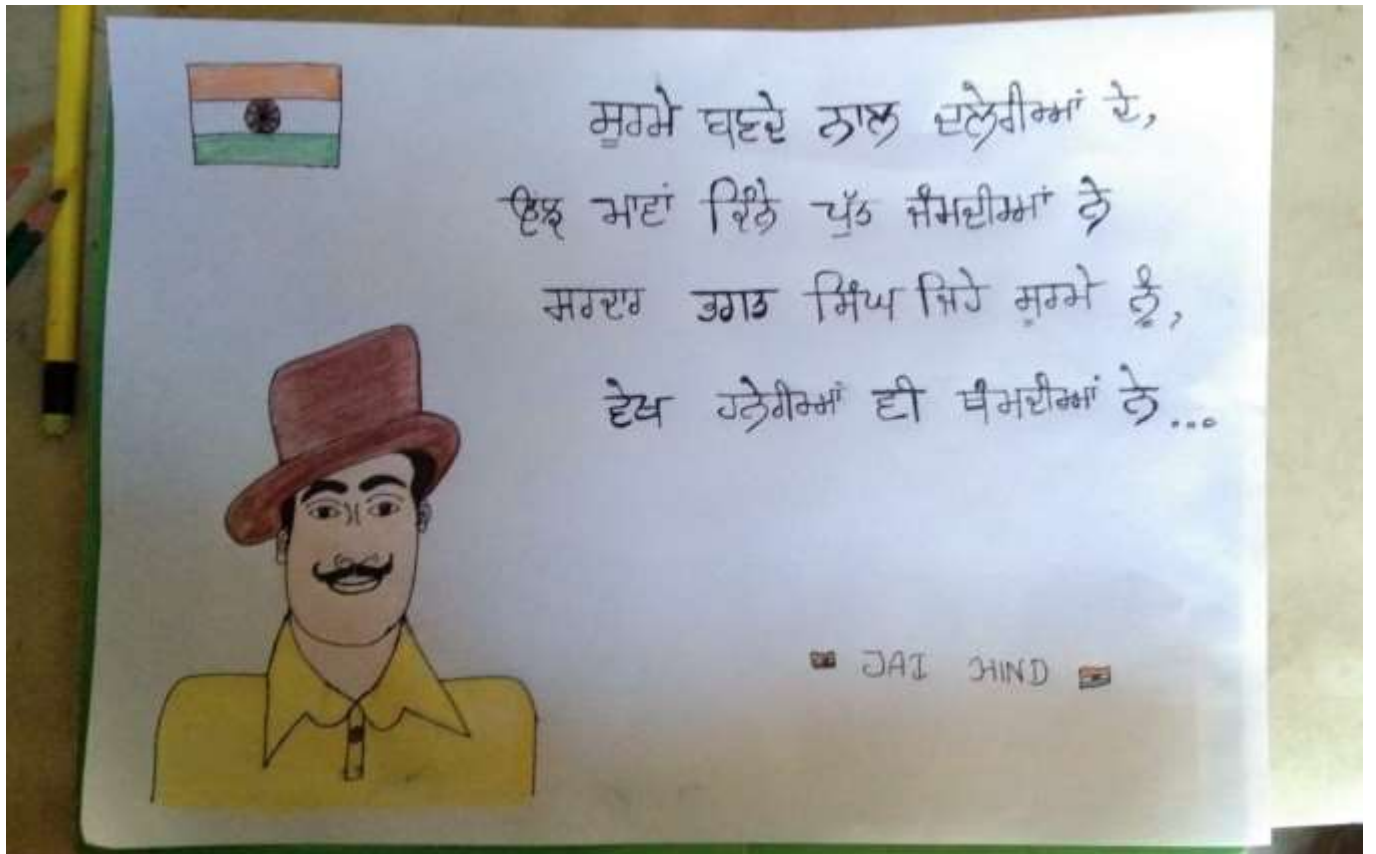 ਸੂਰਮੇ ਬਣਦੇ ਨਾਲ ਦਲੇਰੀਆਂ ਦੇ,
ਉਂਝ ਮਾਵਾਂ ਕਿੰਨੇ ਪੁੱਤ ਜੰਮਦੀਆਂ ਨੇ
ਸਰਦਾਰ ਭਗਤ ਸਿੰਘ ਜਿਹੇ ਸੂਰਮੇ ਨੂੰ,
ਵੇਖ ਹਨੇਰੀਆਂ ਵੀ ਥੰਮਦੀਆਂ ਨੇ...
JAI HIND